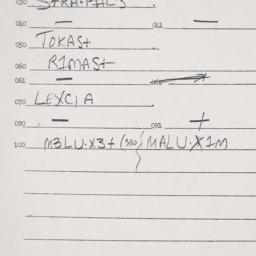 030 STRA·PALS
040 — 042 —
050 TOKAST
060 RIMAST
061 —
070 LEXCIA
090 — 091 +
100 M3LU·X3+(530) MALU·X1M